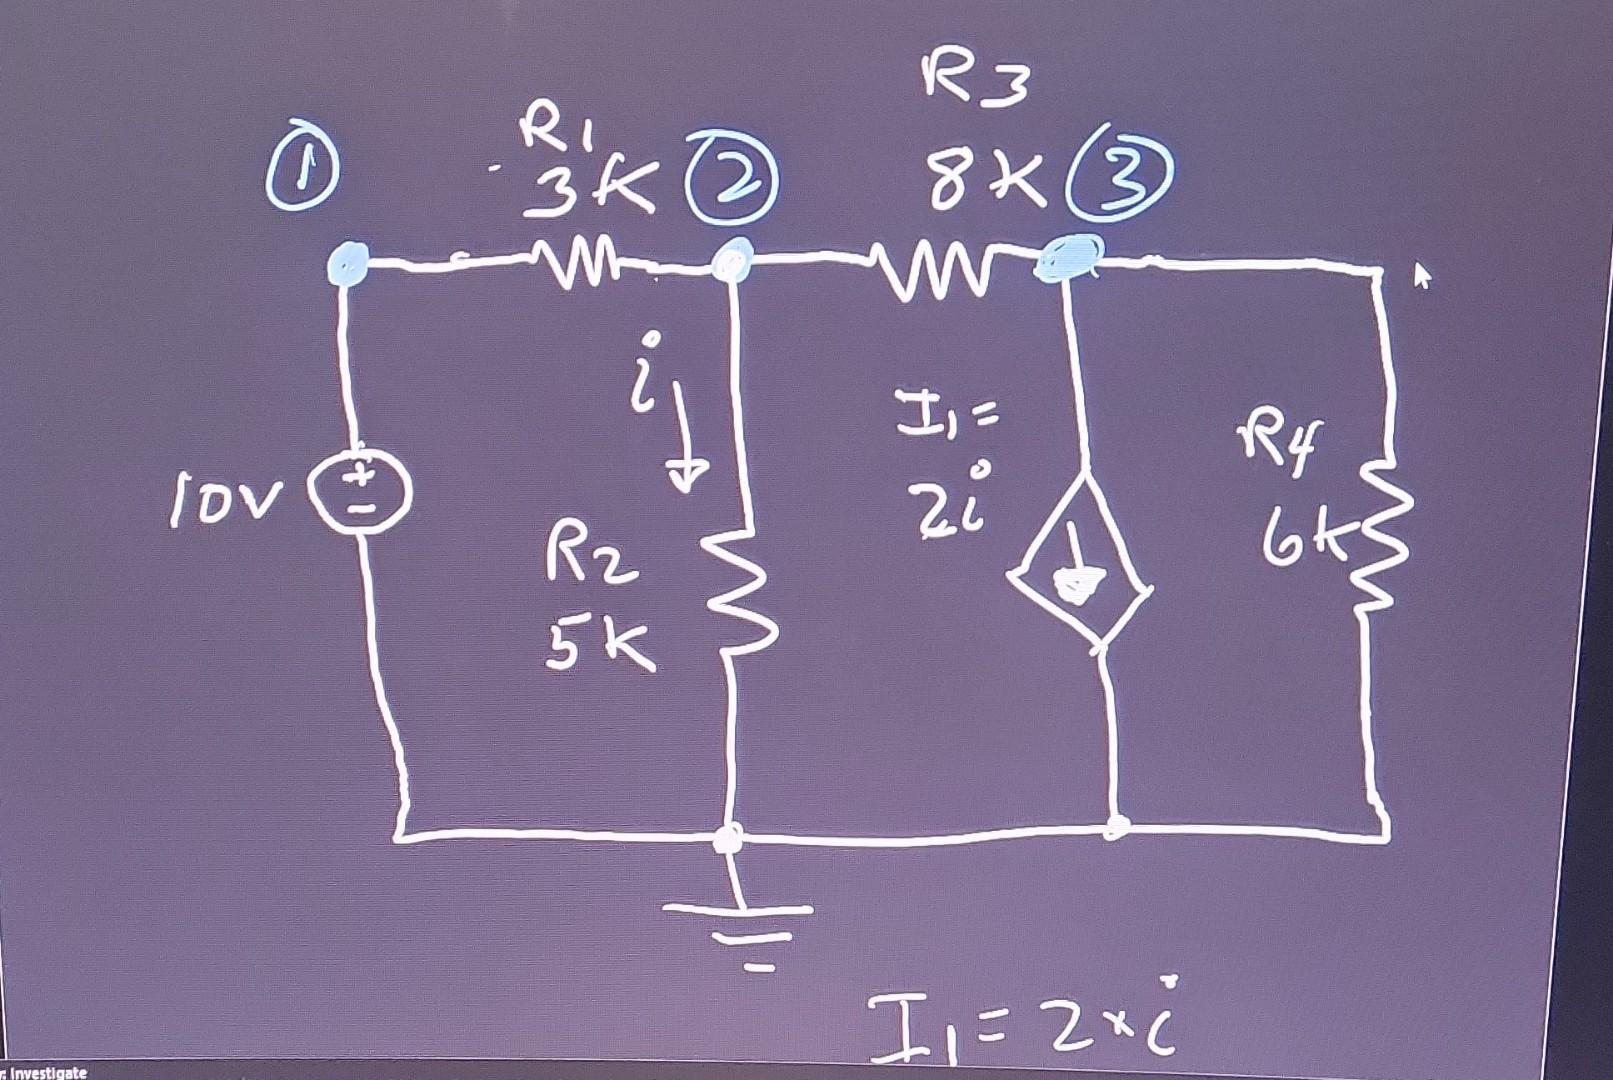 R3
R1
① 3K ② 8K ③
i
I1 =
2i
R4
6K
10V
+
-
R2
5K
I1 = 2*i
: Investigate